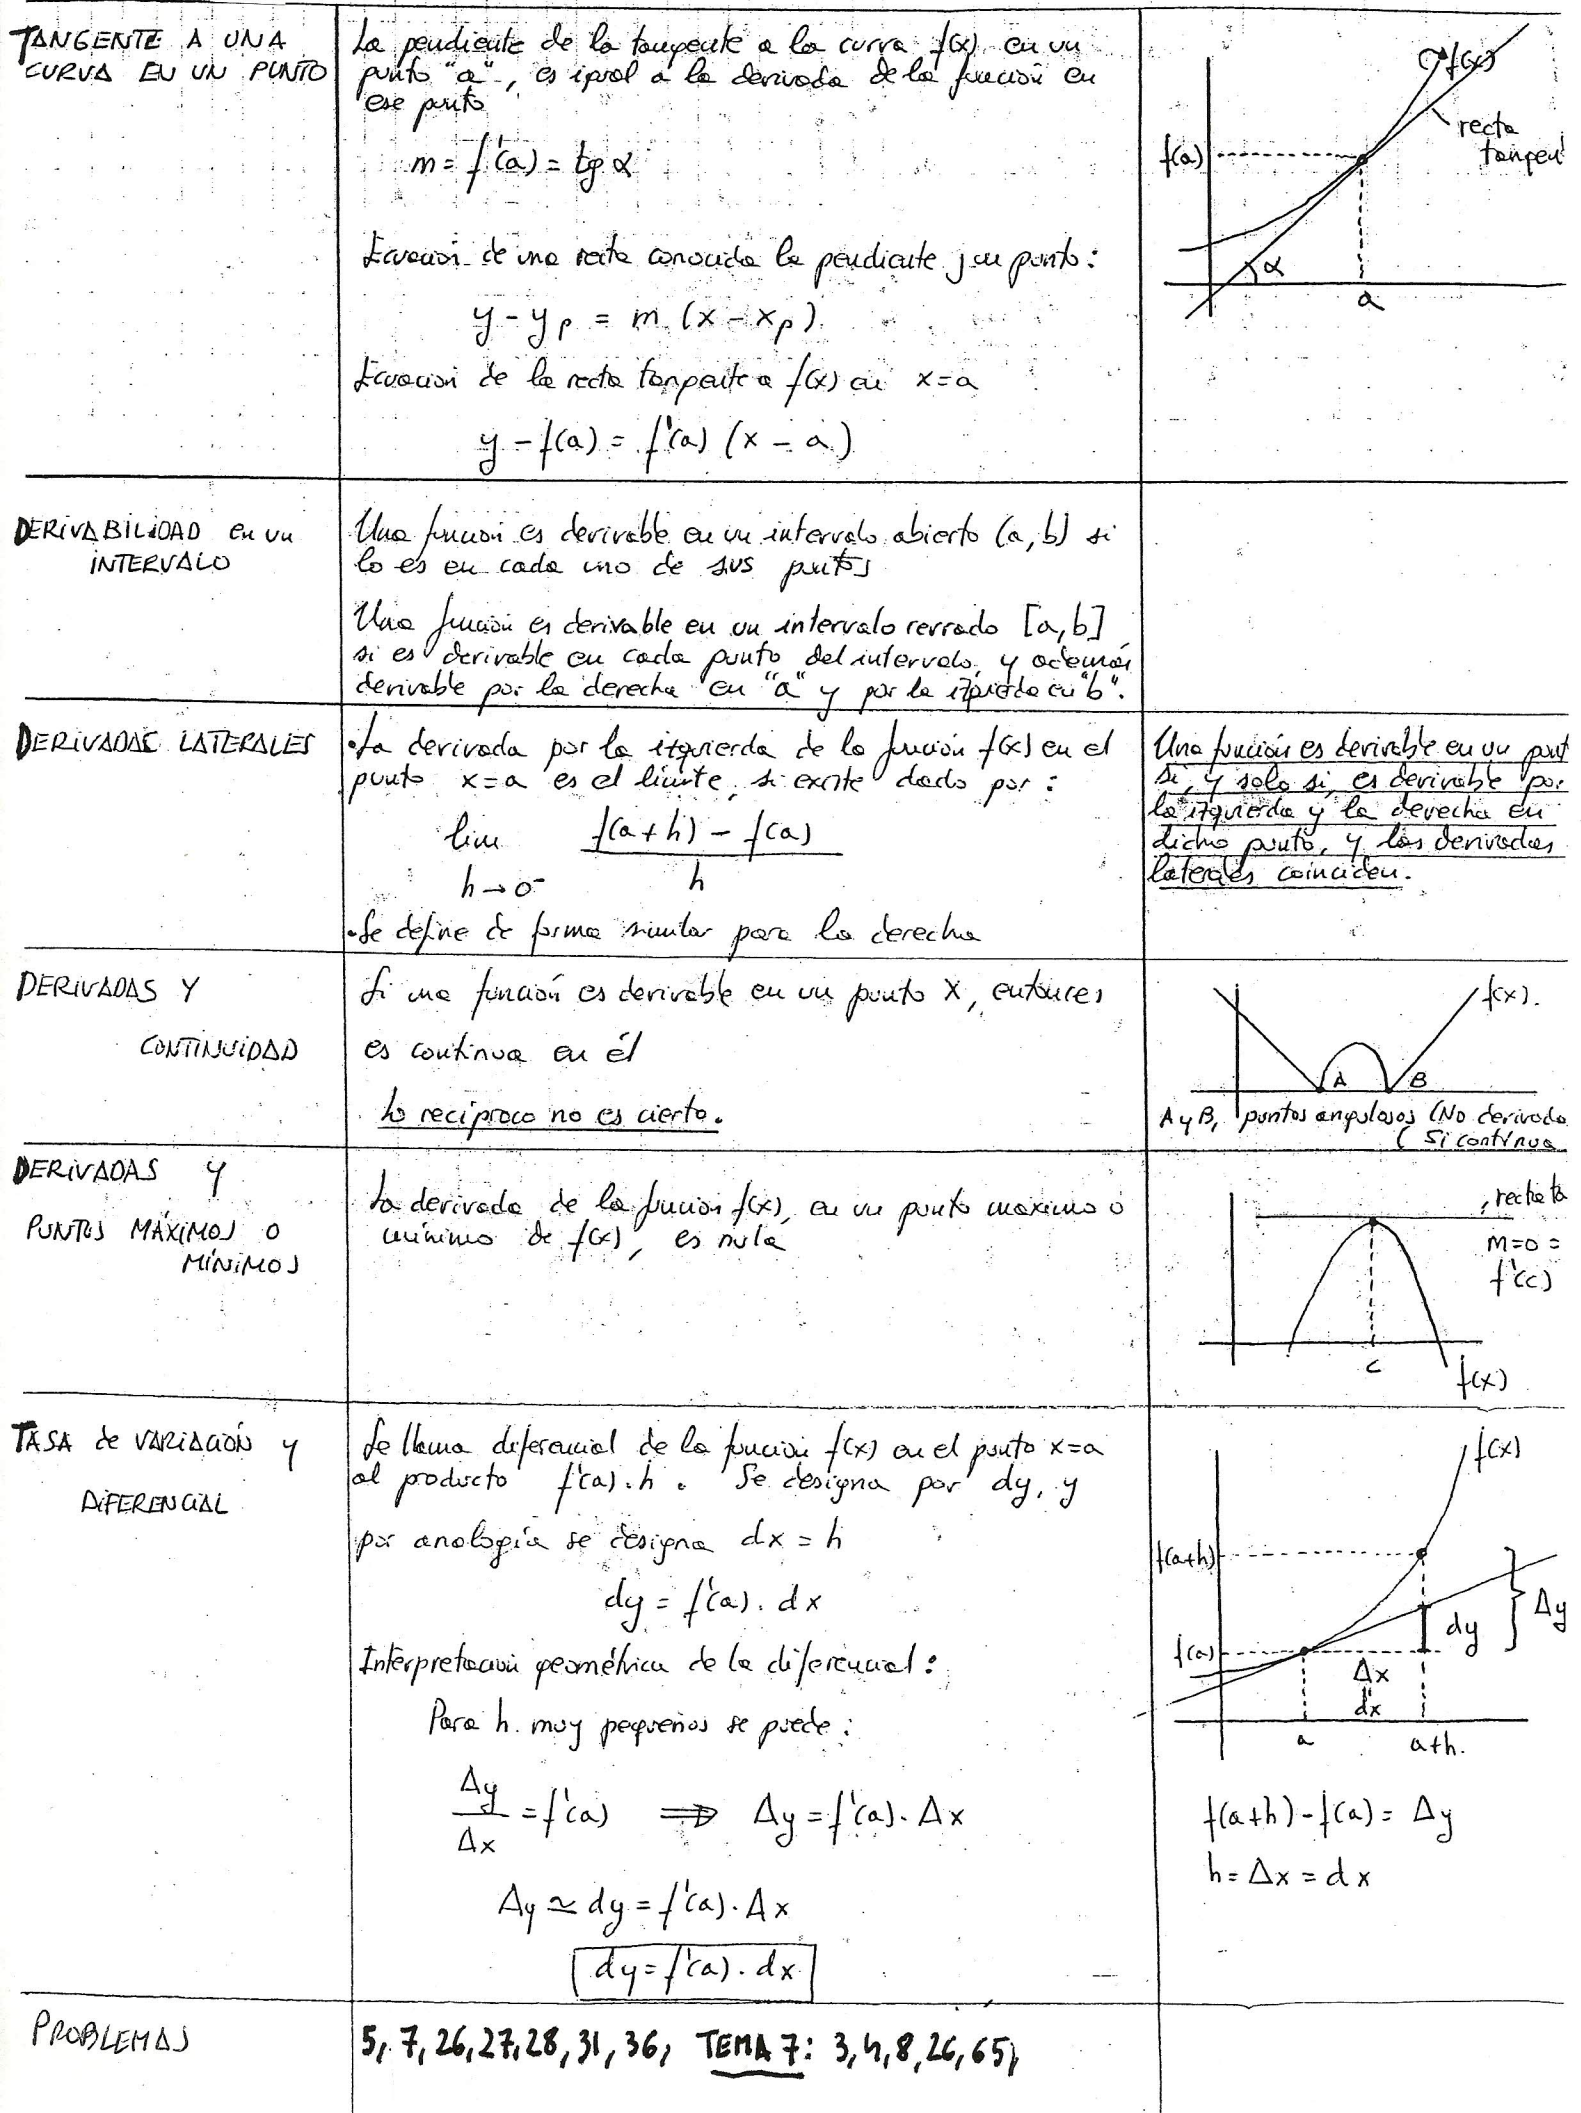 TANGENTE A UNA
CURVA EN UN PUNTO
La pendiente de la tangente a la curva f(x) en un
punto "a", es igual a la derivada de la función en
ese punto
m = f'(a) = tg α
Ecuación de una recta conocida la pendiente y un punto:
y - yp = m (x - xp)
Ecuación de la recta tangente a f(x) en x=a
y - f(a) = f'(a) (x - a)
f(x)
recta
tangen
f(a)
α
a
DERIVABILIDAD en un
INTERVALO
Una función es derivable en un intervalo abierto (a,b) si
lo es en cada uno de sus puntos
Una función es derivable en un intervalo cerrado [a,b]
si es derivable en cada punto del intervalo, y además
derivable por la derecha en "a" y por la izquierda en "b".
DERIVADAS LATERALES
• La derivada por la izquierda de la función f(x) en el
punto x=a es el límite, si existe dado por:
lim f(a+h) - f(a)
h→0⁻ h
• Se define de forma similar para la derecha
Una función es derivable en un punt
si, y solo si, es derivable por
la izquierda y la derecha en
dicho punto, y las derivadas
laterales coinciden.
DERIVADAS Y
CONTINUIDAD
Si una función es derivable en un punto X, entonces
es continua en él
Lo recíproco no es cierto.
f(x).
A B
A y B, puntos angulosos (No derivada
( Si continua
DERIVADAS Y
PUNTOS MÁXIMOS O
MÍNIMOS
La derivada de la función f(x), en un punto máximo ó
mínimo de f(x), es nula
recta ta
m=0 =
f'(c)
c
f(x)
TASA de VARIACIÓN y
DIFERENCIAL
Se llama diferencial de la función f(x) en el punto x=a
al producto f'(a).h. Se designa por dy, y
por analogía se designa dx = h
dy = f'(a). dx
Interpretación geométrica de la diferencial:
Para h. muy pequeños se puede:
Δy
Δx = f'(a) ⟹ Δy = f'(a). Δx
Δy ≃ dy = f'(a). Δx
dy = f'(a). dx
f(x)
f(a+h)
Δy
dy
f(a)
Δx
dx
a a+h.
f(a+h) - f(a) = Δy
h = Δx = dx
PROBLEMAS
5, 7, 26, 27, 28, 31, 36, TEMA 7: 3, 4, 8, 26, 65,